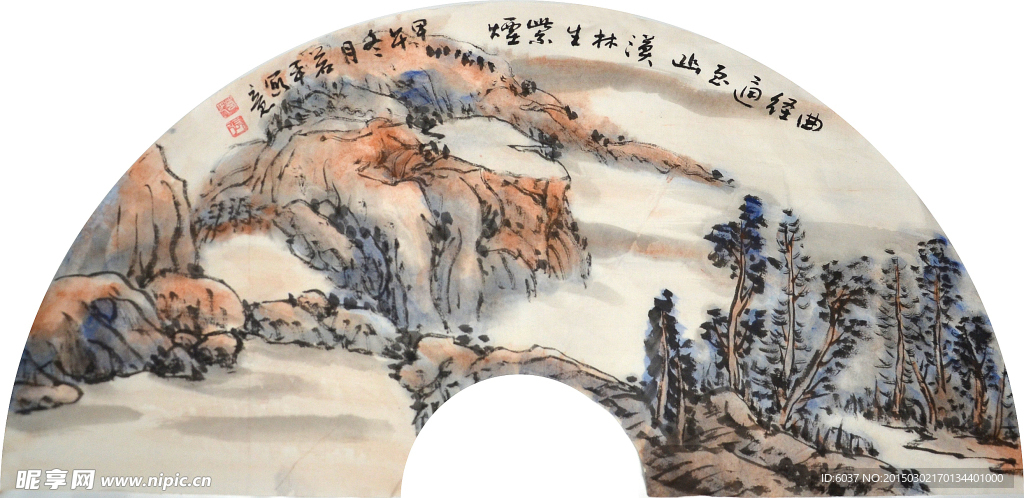 曲径通幽漠林生紫煙
甲午冬月若平寫
昵享网 www.nipic.cn
ID:6037 NO:20150302170134401000